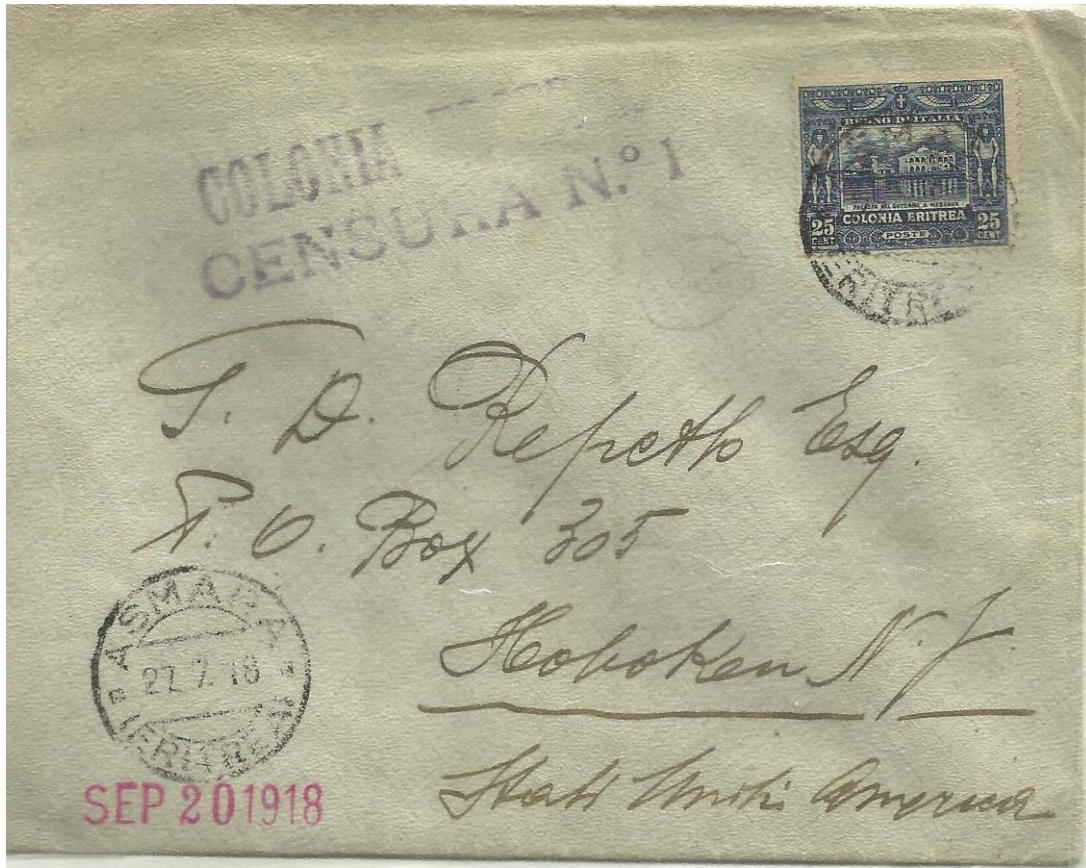 COLONIA
CENSURA N.º 1
REGNO DI ITALIA
PALAZZO DEL GOVERNO A MASSAUA
COLONIA ERITREA
25 CENT
POSTE
25 CENT
T. D. Repetto Esq.
P. O. Box 305
Hoboken N. J
Stati Uniti America
ASMARA
27.7.18
(ERITREA)
SEP 20 1918